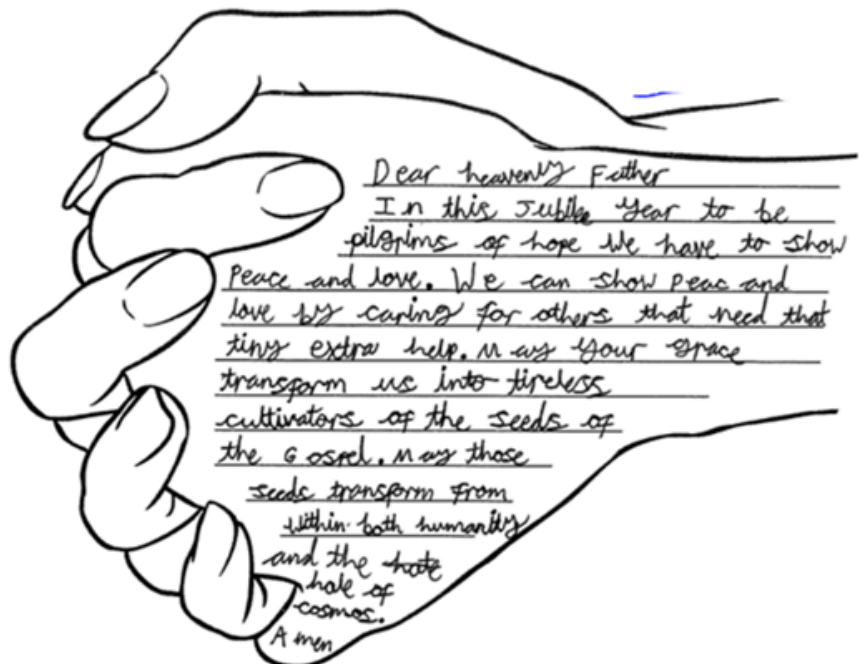 Dear heavenly Father
In this Jubilee year to be
pilgrims of hope we have to show
Peace and love. We can show peac and
love by caring for others that need that
tiny extra help. May your grace
transform us into tireless
cultivators of the seeds of
the Gospel. May those
seeds transform from
within both humanity
and the hate
hole of
cosmos.
Amen